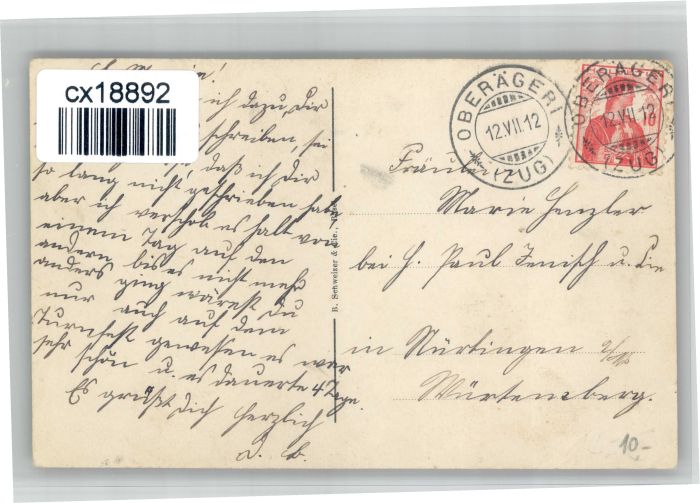 cx18892
ich dazu, Dir
schreiben, sei
daß ich Dir
so lang nicht geschrieben habe
aber ich verschob es halt von
einem Tag auf den
andern bis es nicht mehr
anders ging wärest Du
nur auch auf dem
Turnfest gewesen es war
sehr schön u. es dauerte 4 Tage.
Es grüßt Dich herzlich
R. Schweizer & Cie.,
OBERÄGERI
12.VII.12
(ZUG)
OBERÄGERI
12.VII.12
(ZUG)
Fräulein
Marie Henzler
bei H. Paul Jenisch u. Cie
in Nürtingen
Würtemberg.
10-